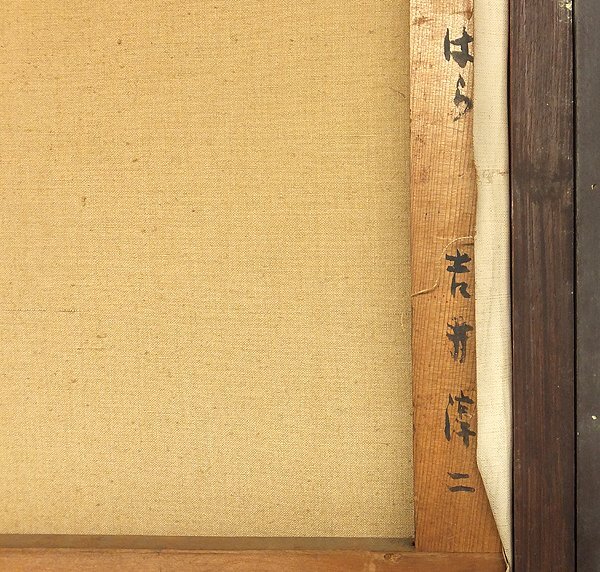 ばら
吉井淳二